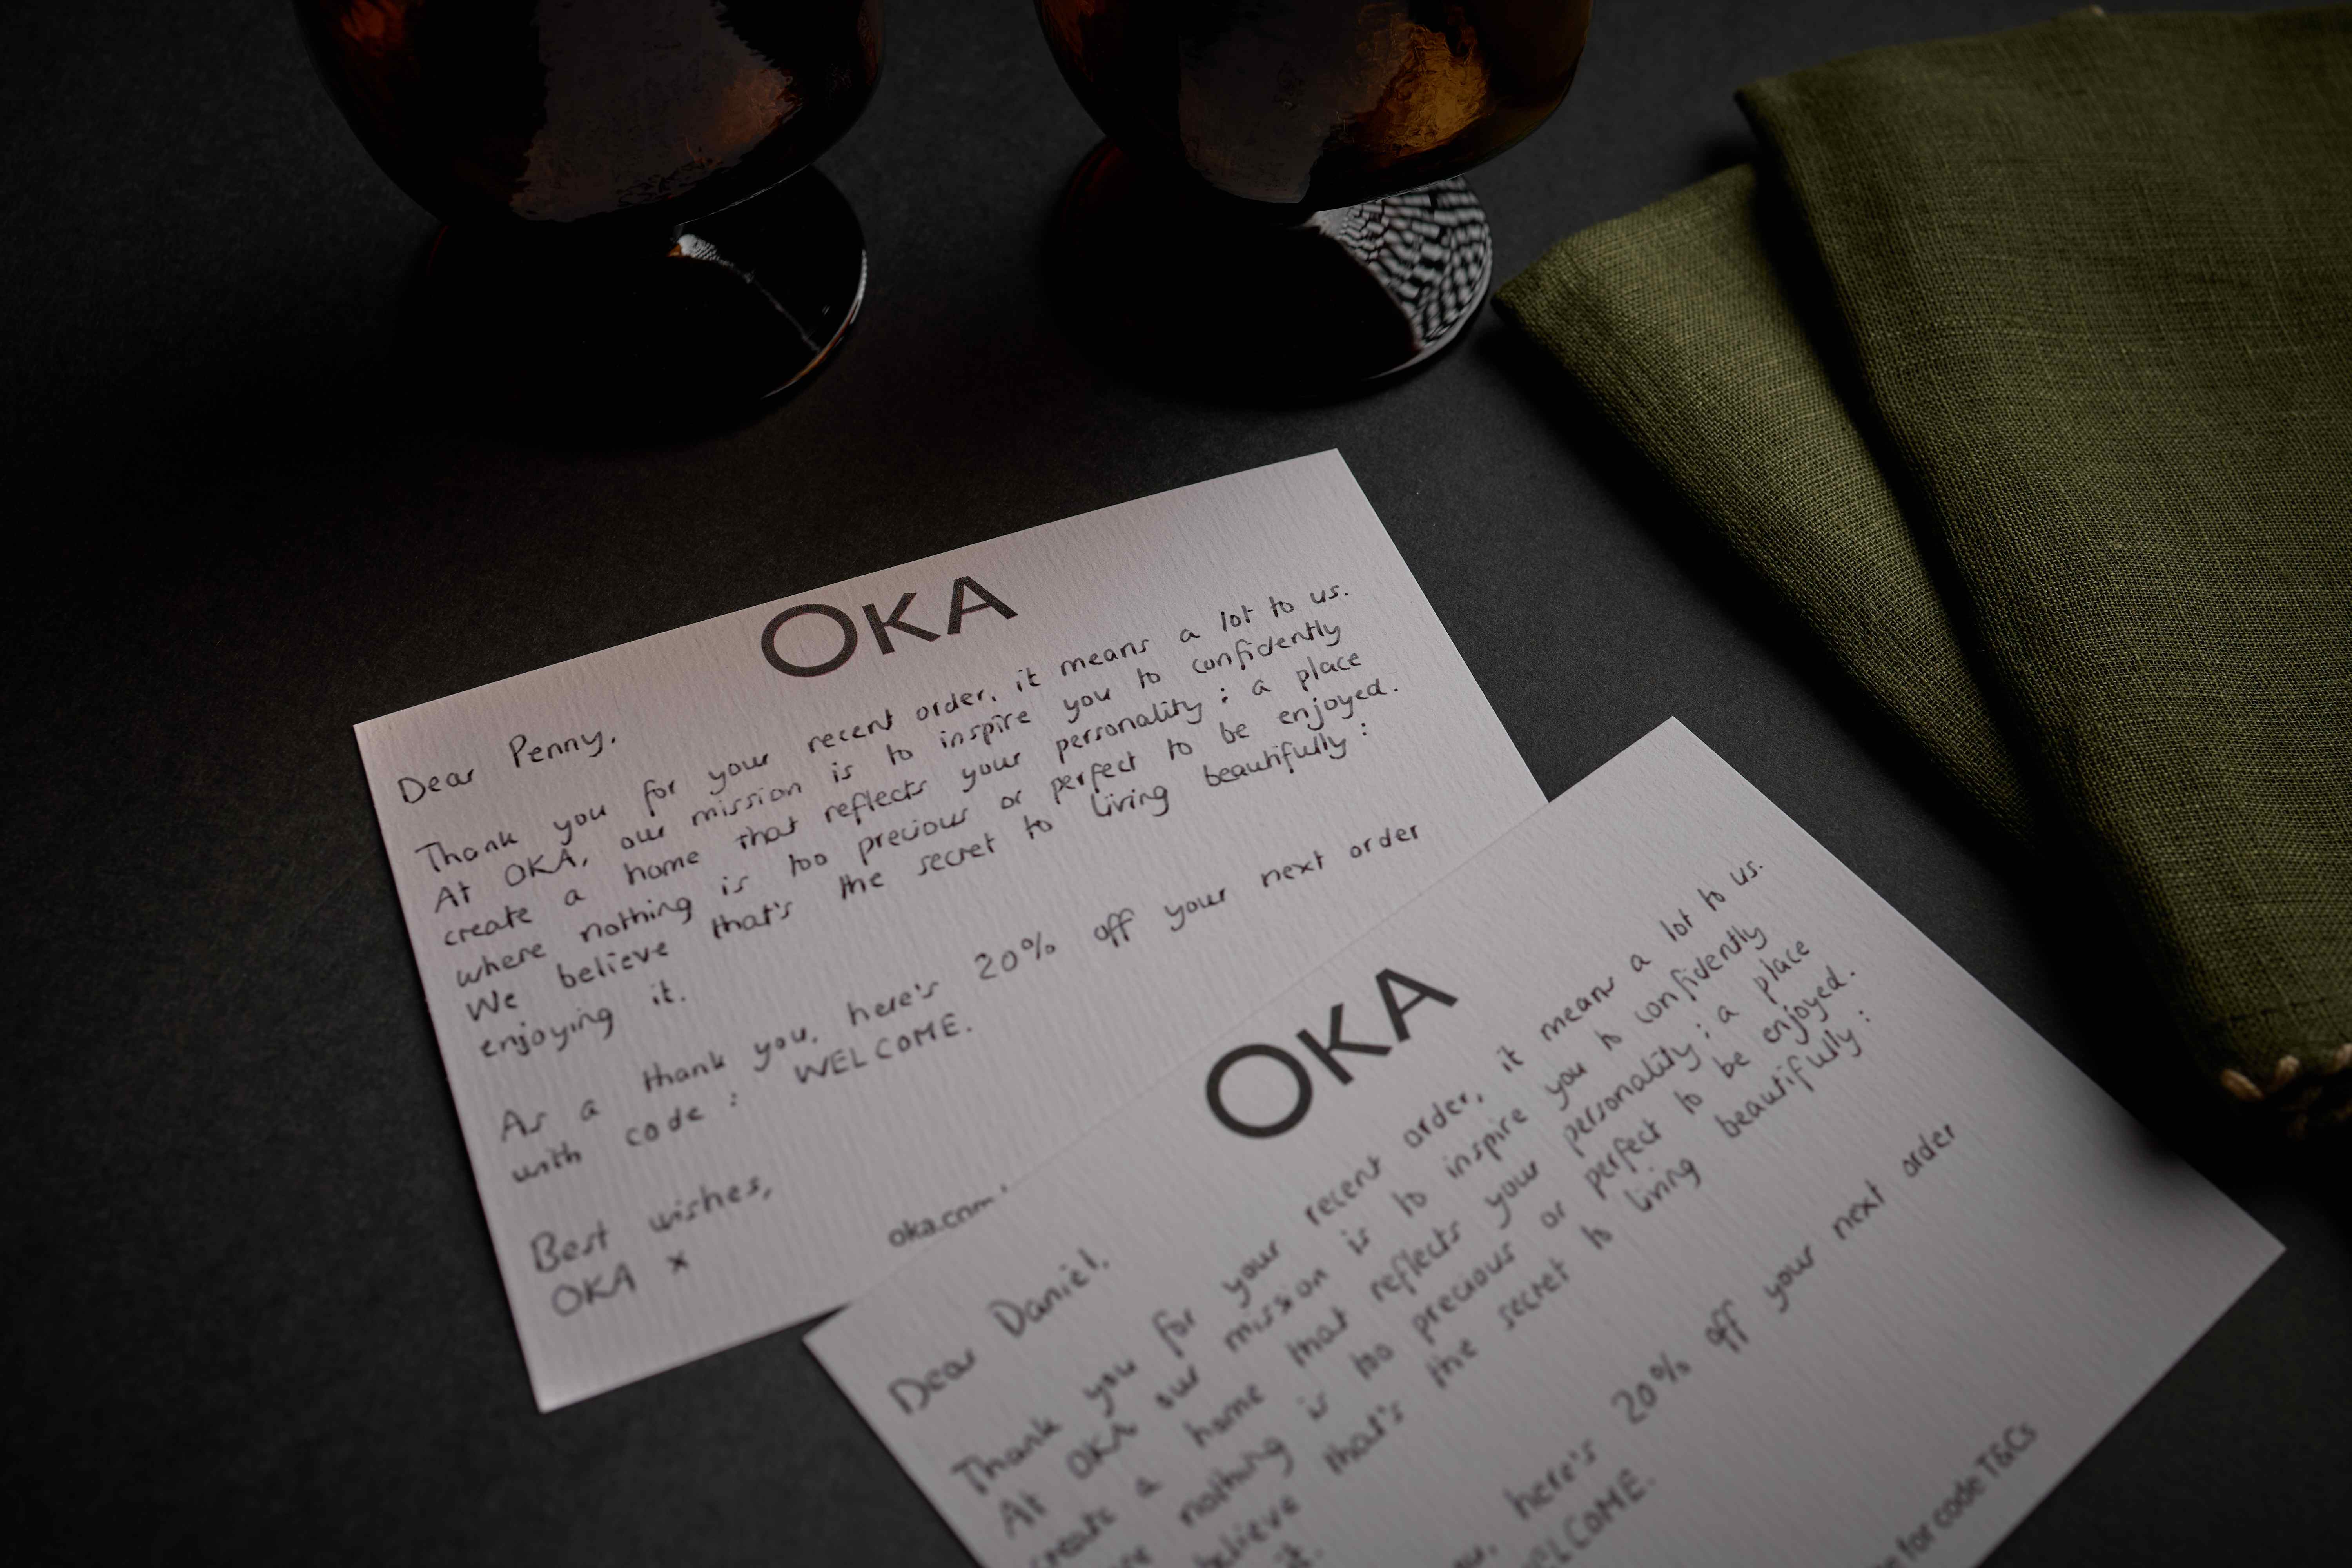 OKA
Dear Penny,
Thank you for your recent order, it means a lot to us.
At OKA, our mission is to inspire you to confidently
create a home that reflects your personality : a place
where nothing is too precious or perfect to be enjoyed.
We believe that's the secret to living beautifully :
enjoying it.
As a thank you, here's 20% off your next order
with code : WELCOME.
Best wishes,
OKA x
OKA
Dear Daniel,
Thank you for your recent order, it means a lot to us.
At OKA our mission is to inspire you to confidently
create a home that reflects your personality : a place
nothing is too precious or perfect to be enjoyed.
that's the secret to living beautifully :
it.
here's 20% off your next order
for code T&Cs